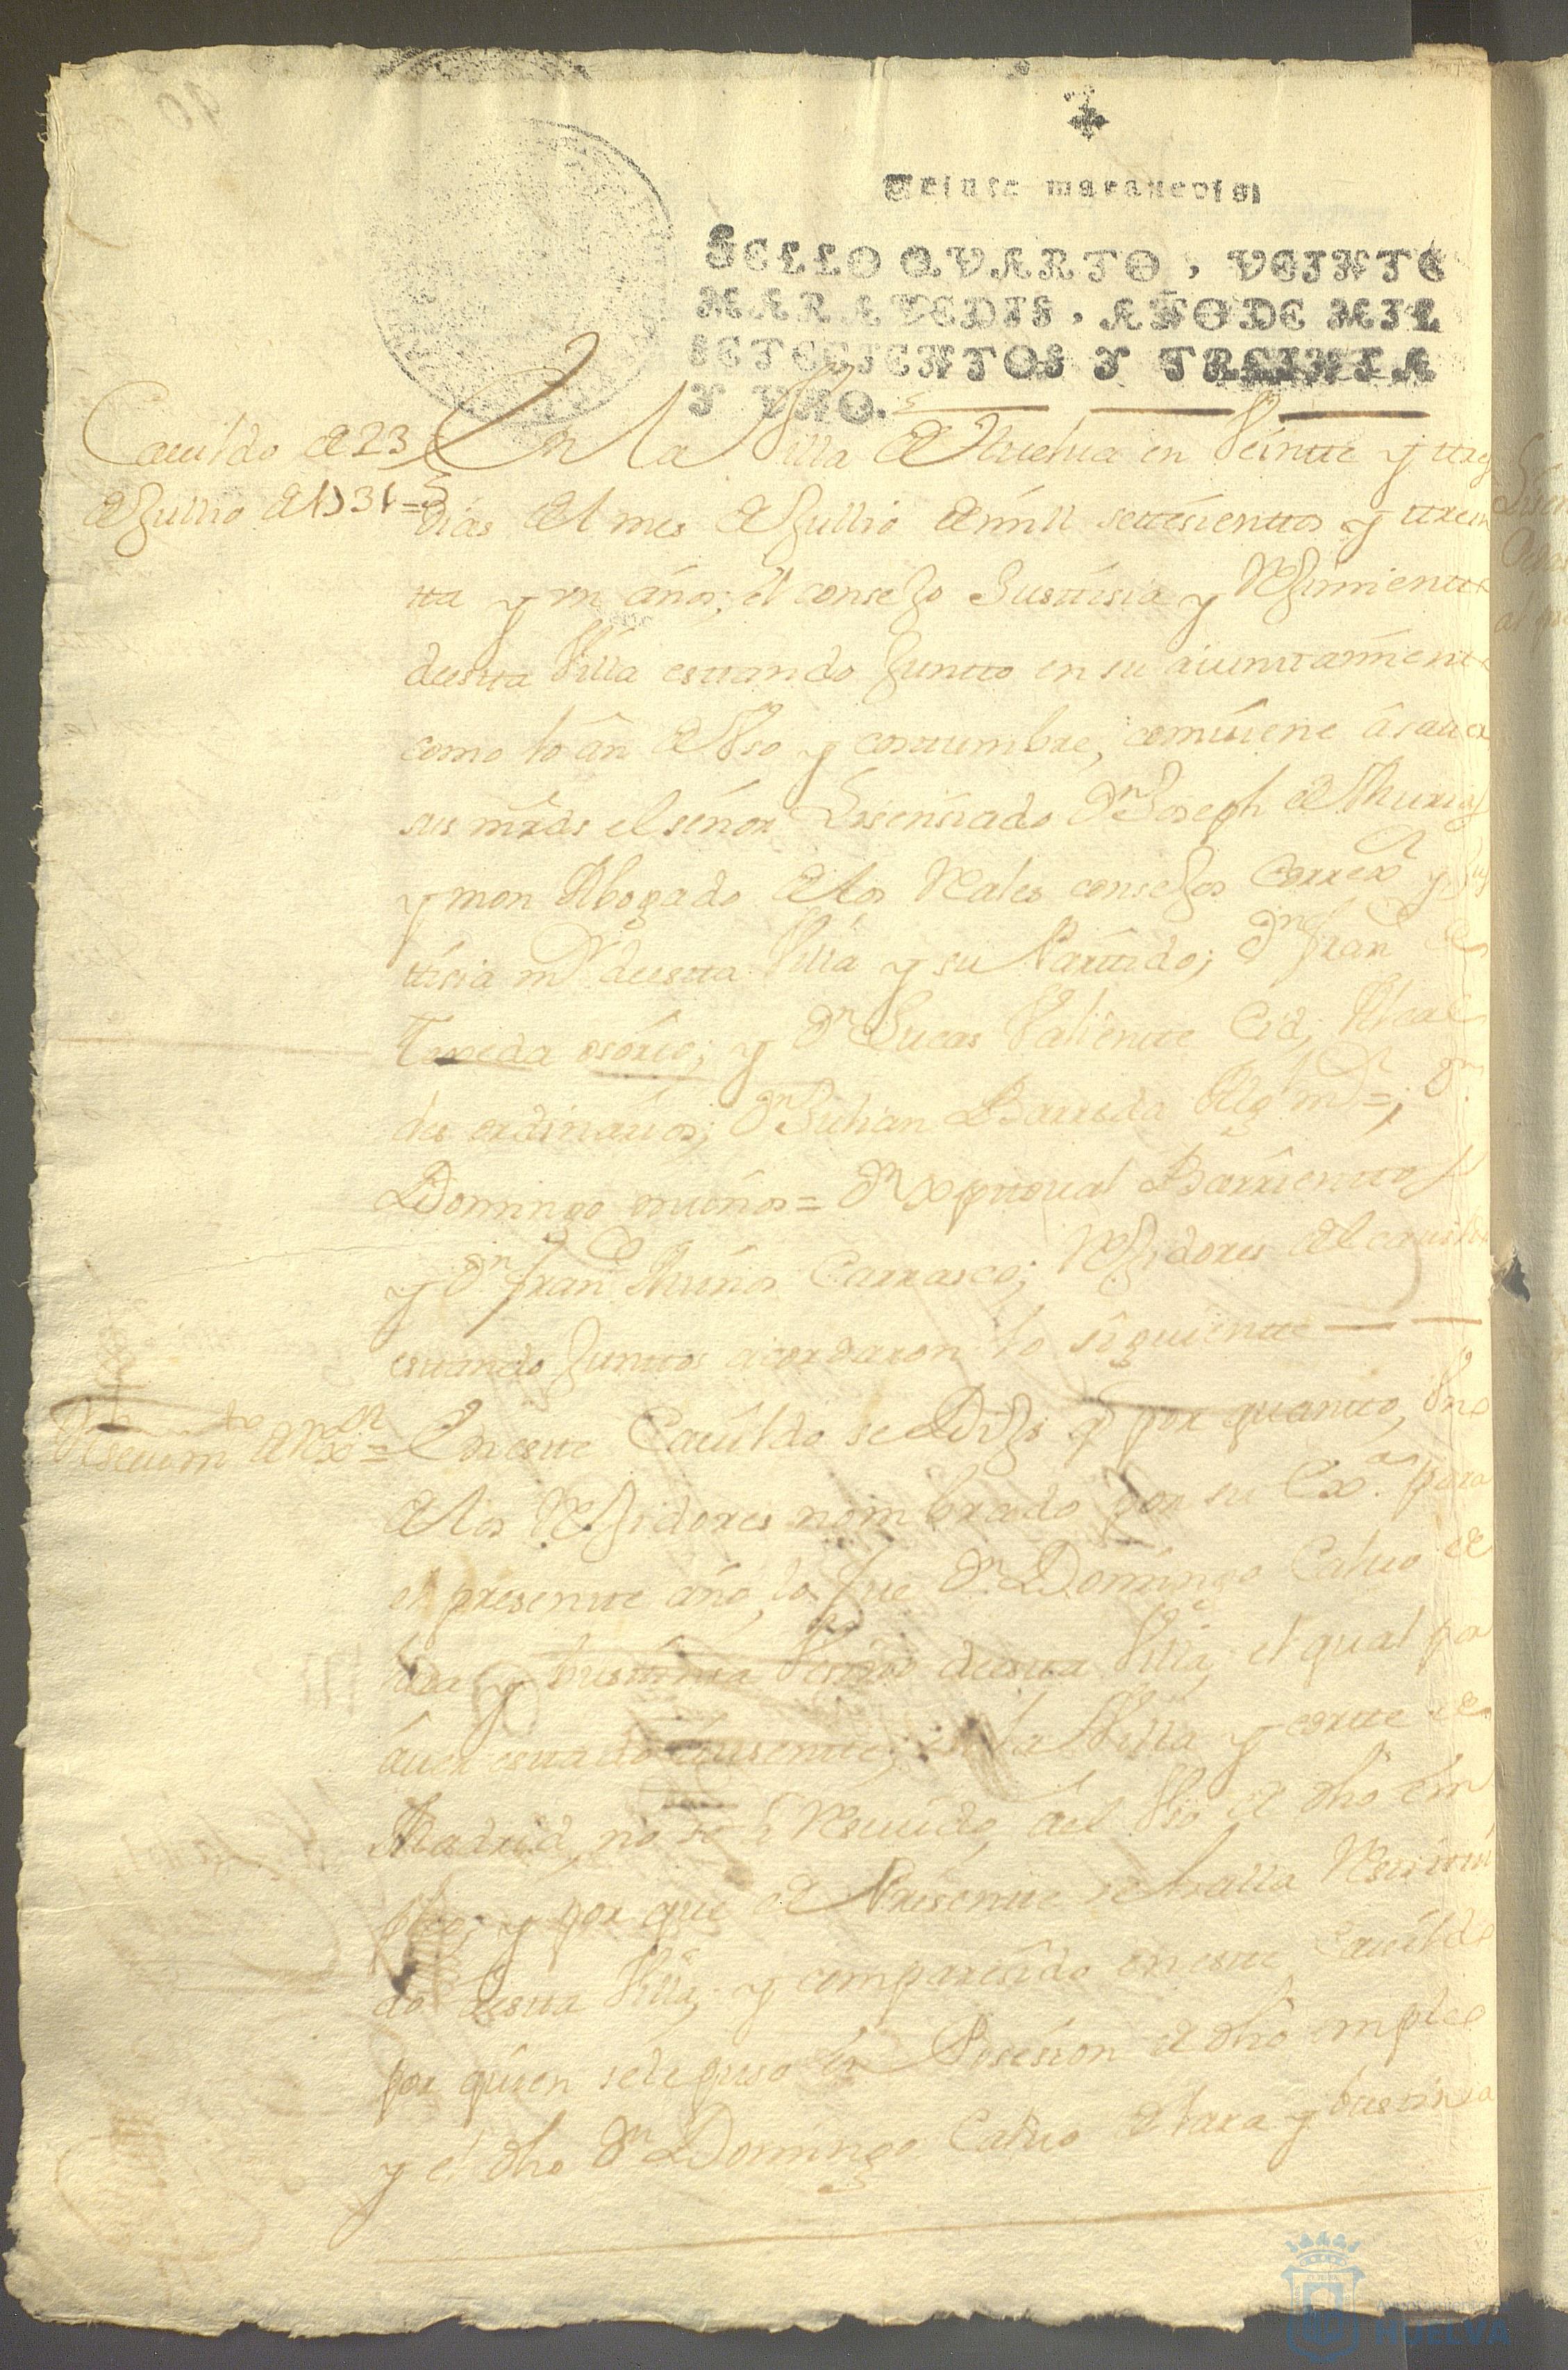 Veinte maravedis
SELLO QVARTO, VEINTE
MARAVEDIS, AÑO DE MIL
SETECIENTOS Y TREINTA
Y VNO.
Cauildo de 23
de Jullio de 1731=
En la Villa de Huelua en Veintte y ttres
dias del mes de Jullio de mill settesienttos y ttrein
tta y un años; el consejo Justtisia y Rejimientto
desta Villa estando Juntto en su aiunttamientto
como lo án de Vso y costumbre, comuiene ásauer
sus mrds el señor Lisensiado Dn Joseph de
y mon Abogado de los Reales consejos Correxr y Jus
ttisia mr desta Villa y su Parttido; Dn Franco de
osorio; y Dn Lucas Valientte Cid, Alcal
des ordinarios; Dn Julian Barreda Algl mr=; Dn
Domingo muños= Dn Xpttoual Barrienttos
y Dn Franco Muños Carrasco; Rejidores del cauildo
estando Junttos acordaron lo siguientte
Reseuimto de Rexr=
En estte Cauildo se Dijo q por quantto, Vno
de los Rejidores nombrado por su Exa. para
el presentte año, lo fue Dn Domingo Caluo de
lara y busttinsa Vesino desta Villa, el qual por
áuer estado áusentte, en la Villa y cortte de
Madrid, no se á Resiuido ael Vso de dho em
pleo; y por que de Presentte se halla Resttitui
do desta Villa, y comparesido en estte Cauildo
por quien se le puso en Posesion de dho empleo
y el dho Dn Domingo Caluo de lara y busttinsa
Ayuntamiento de
HUELVA